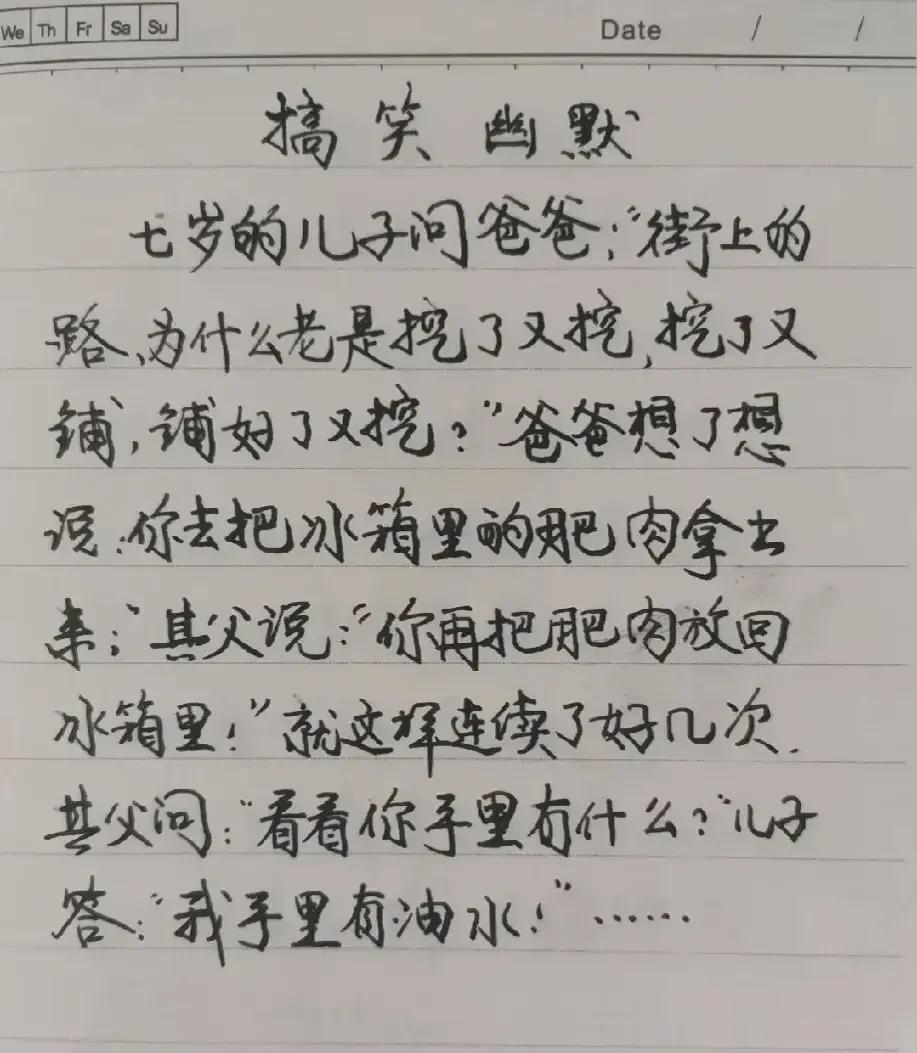 We Th Fr Sa Su Date / /
搞笑幽默
七岁的儿子问爸爸:“街上的
路、为什么老是挖了又挖,挖了又
铺,铺好了又挖?”爸爸想了想
说:你去把冰箱里的肥肉拿出
来;”其父说:“你再把肥肉放回
冰箱里!”就这样连续了好几次.
其父问:“看看你手里有什么?”儿子
答:“我手里有油水!”……